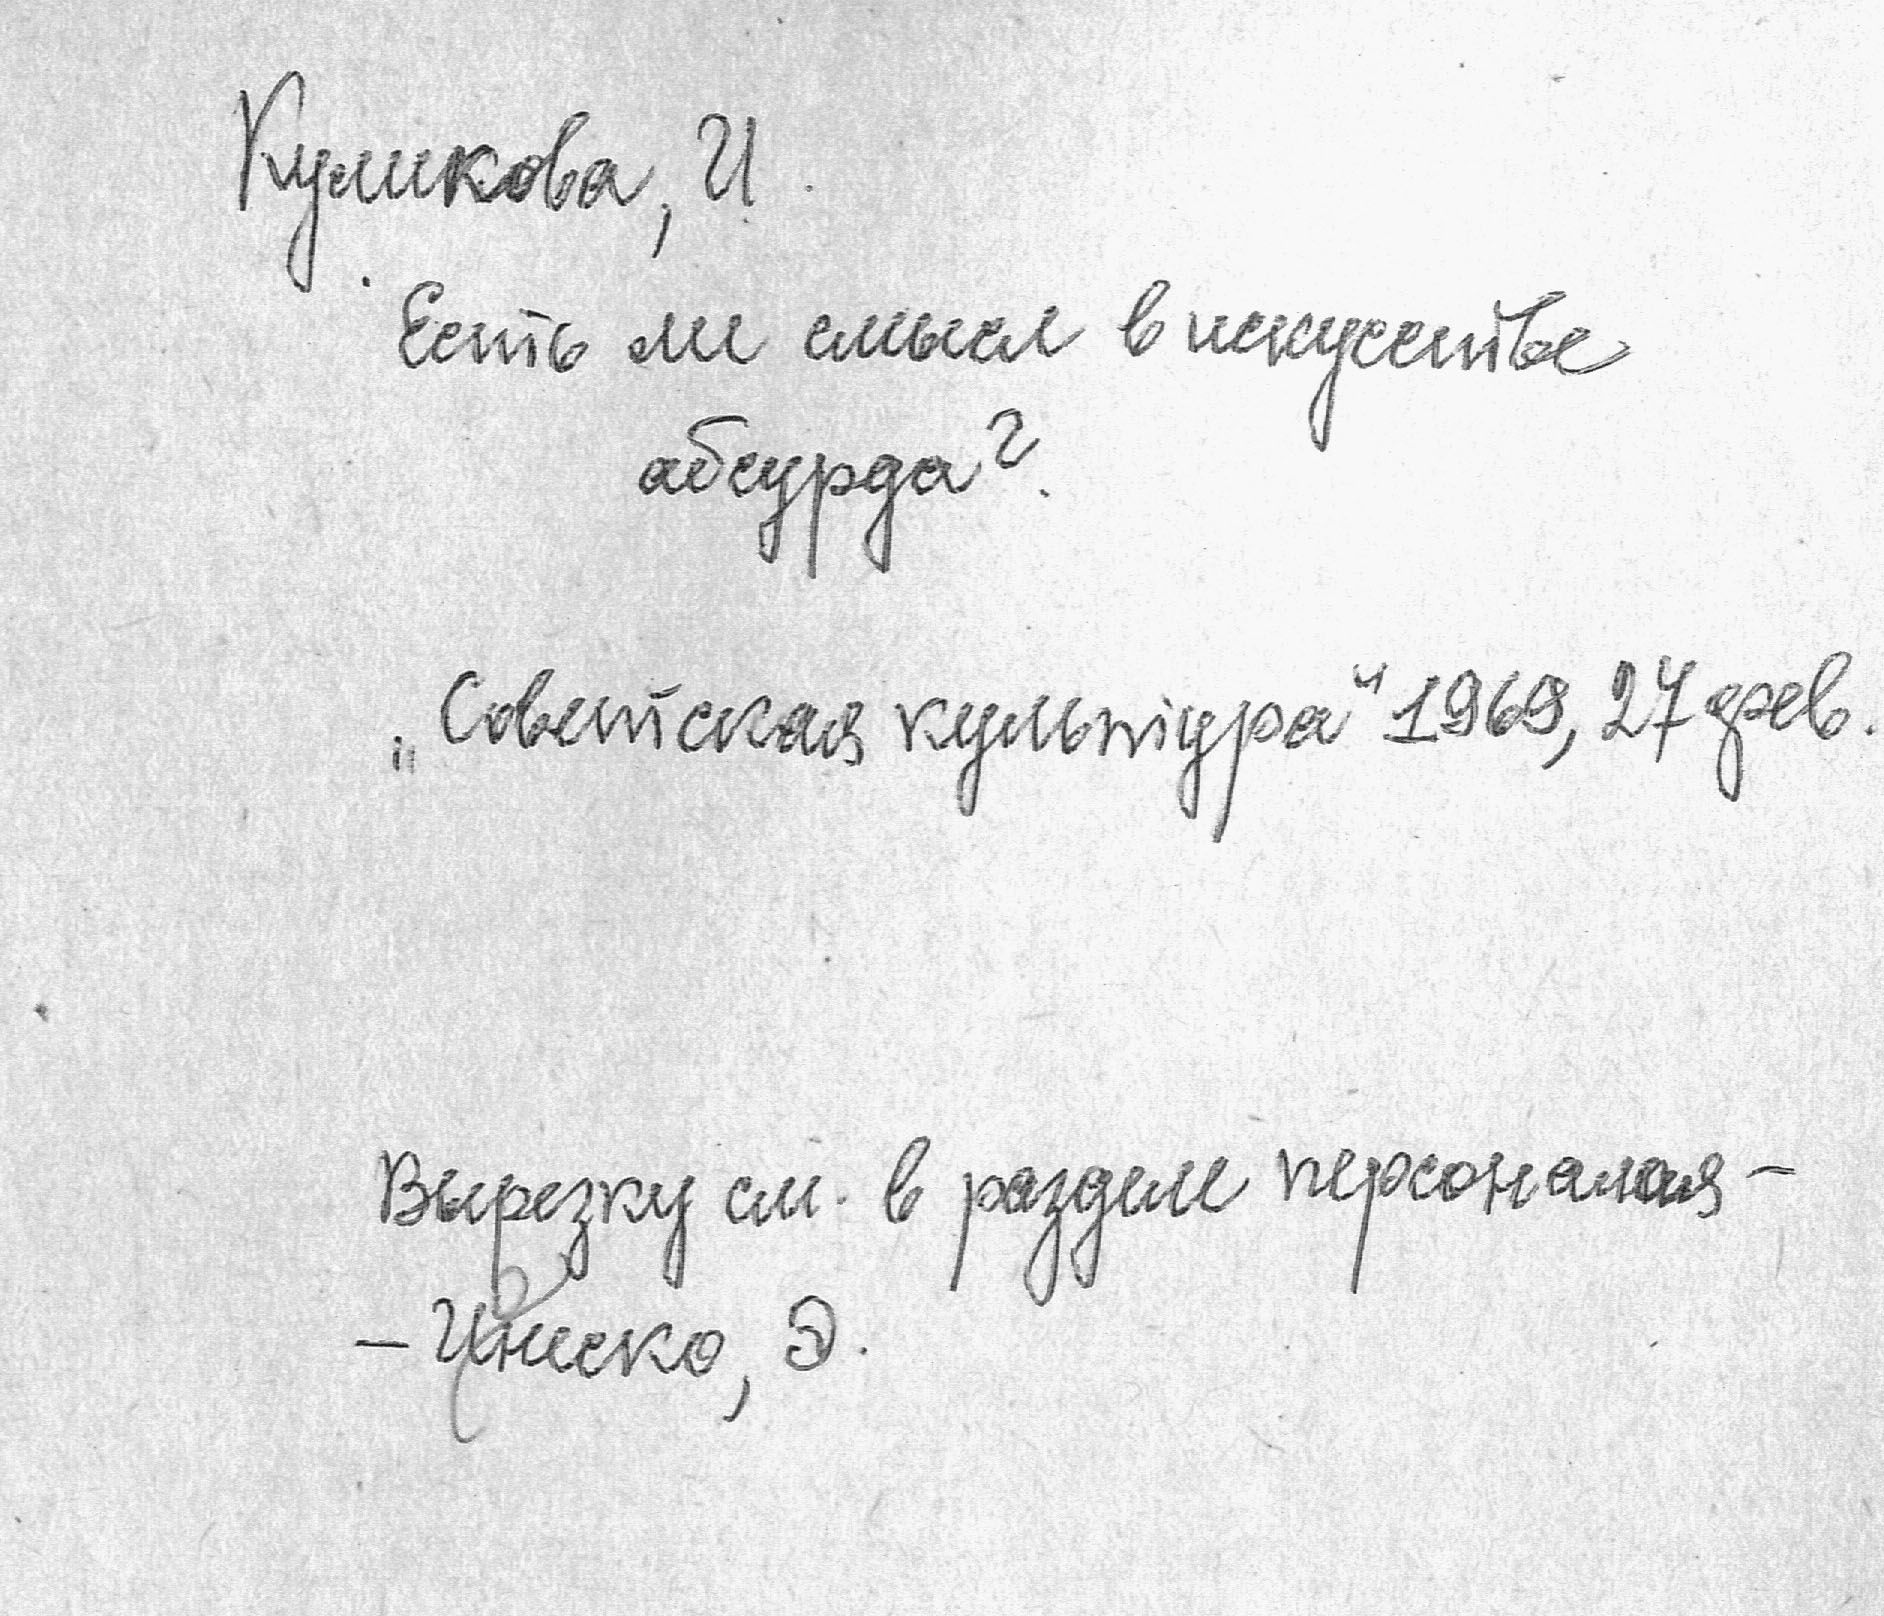 Куликова, И.
Есть ли смысл в искусстве
абсурда?.
„Советская культура" 1969, 27 фев.
Вырезку см. в разделе персоналия -
- Ионеско, Э.